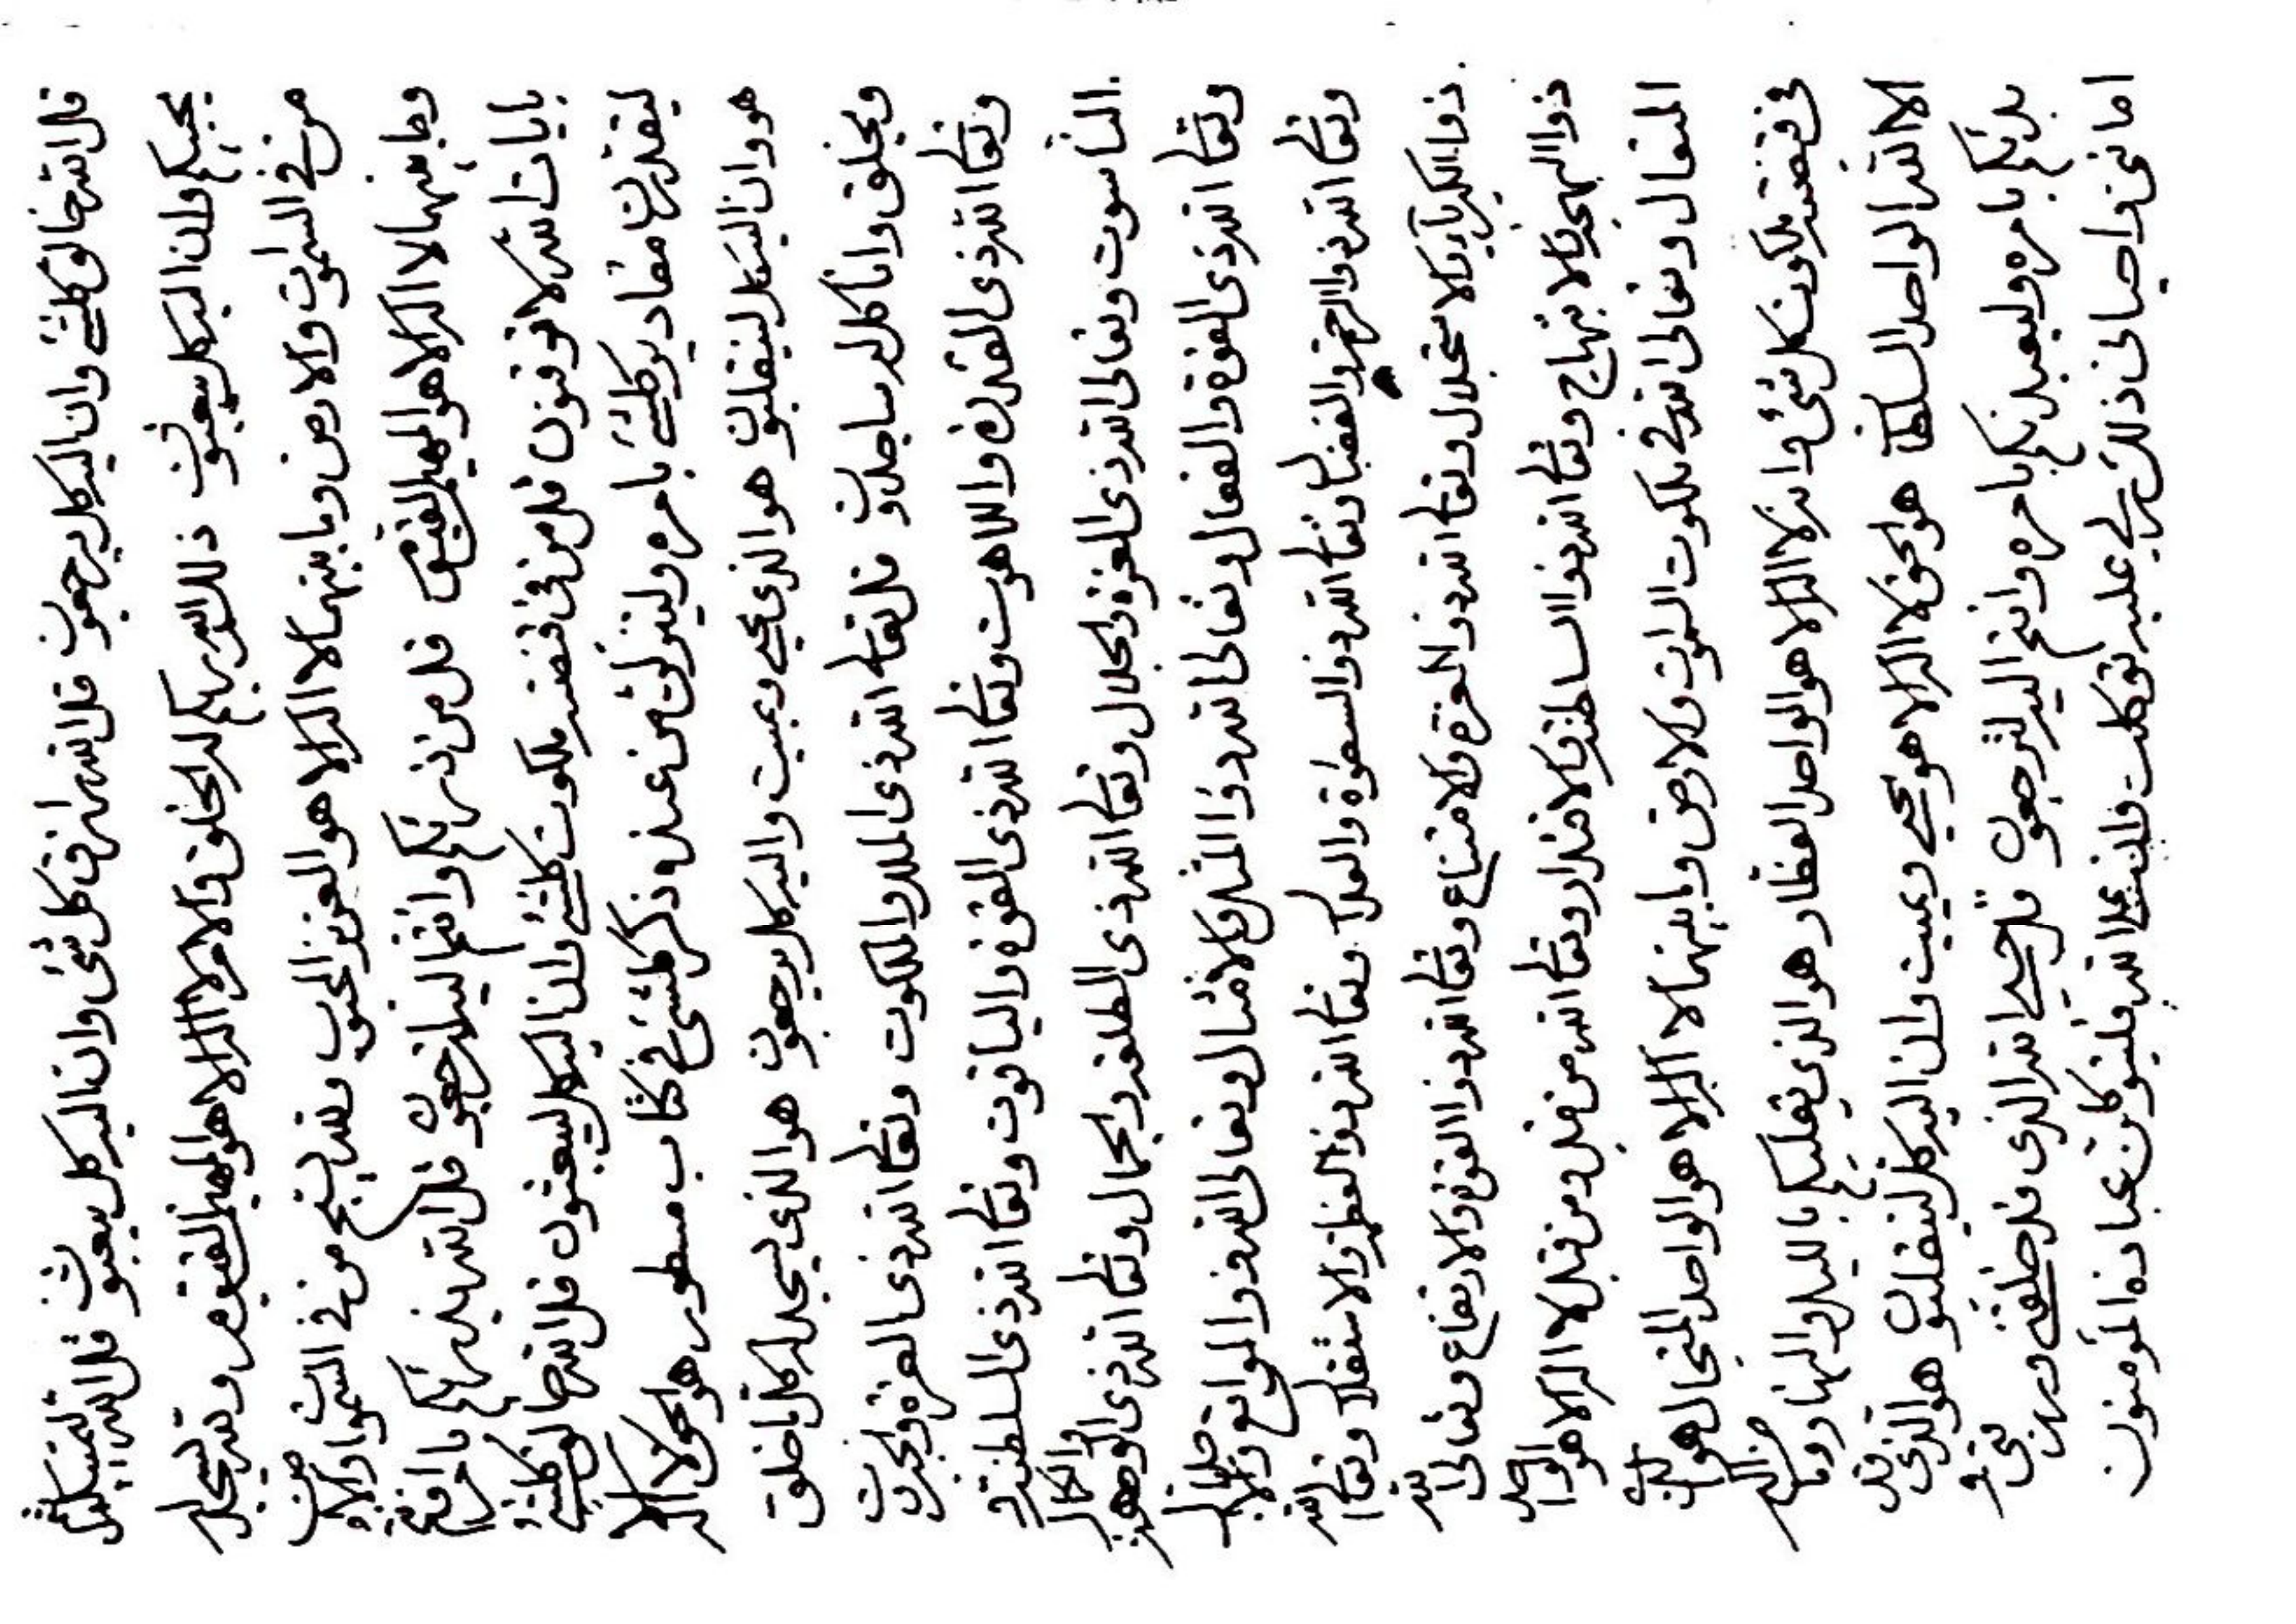 قل الله خالق كلشئ وان اليه كل يرجعون قل الله رازق كل شئ وان اليه كل يبعثون قل الله يميتكم ثم
يحييكم وان اليه كل يبعثون ذلك الله ربكم له الخلق والامر لا اله الا هو المهيمن القيوم ولله يسجد
من في السموات والارض وما بينهما لا اله الا هو العزيز المحبوب ولله يسبح من في السموات والارض
وما بينهما لا اله الا هو المهيمن القيوم قل من يذرئكم وانتم اليه لترجعون قل الله يذرئكم بامره
بايات الله لا توقنون قل من في قبضته ملكوت كلشئ وان اليه كل يبعثون قل الله خالق كلشئ
ليقدرن مقادير كلشئ بامره ولينزلن من عنده ذكر كلشئ في كتاب مسطور هو الحق لا اله الا
هو وان اليه كل لينقلبون هو الذي يحيي ويميت واليه كل يرجعون هو الذي يسجد له كل ما خلق
ويخلق وانا كل له ساجدون قل تعالى الله ذي الملك والملكوت وتعالى الله ذي العزة والجبروت
وتعالى الله ذي القدرة واللاهوت وتعالى الله ذي القوة والياقوت وتعالى الله ذي السلطنة و
الناسوت وتعالى الله ذي العزة والجلال وتعالى الله ذي الطلعة والجمال وتعالى الله ذي الوجهة والكمال
وتعالى الله ذي القوة والفعال وتعالى الله ذو المثل والامثال وتعالى الله ذو المواقع
وتعالى الله ذو الرحمة والفضال وتعالى الله ذو السطوة والعدال وتعالى الله ذو العظمة والاستقلال وتعالى الله
ذو الكبرياء والاستجلال وتعالى الله ذو العزة والامتناع وتعالى الله ذو القوة والارتفاع وتعالى الله
ذو البهجة والابتهاج وتعالى الله ذو السلطنة والاقتدار وتعالى الله من قبل ومن بعد لا اله الا هو الواحد
المتعال وتعالى الله في ملكوت السموات والارض وما بينهما لا اله الا هو الواحد المتجال هو الذي
في قبضته ملكوت كل شئ وانه لا اله الا هو الواحد الغفار هو الذي يقلبكم بالليل والنهار وما من اله
الا الله الواحد السلطان هو الحق لا اله الا هو يحيي ويميت وان اليه كل لينقلبون هو الذي قد
بدئكم بامره وليعيدنكم بامره وانتم اليه لترجعون قل حسبي الله الذي قد خلقني ورزقني و
اماتني واحياني ذلك ربي عليه توكلت وان على الله فليتوكلن عباده المؤمنون